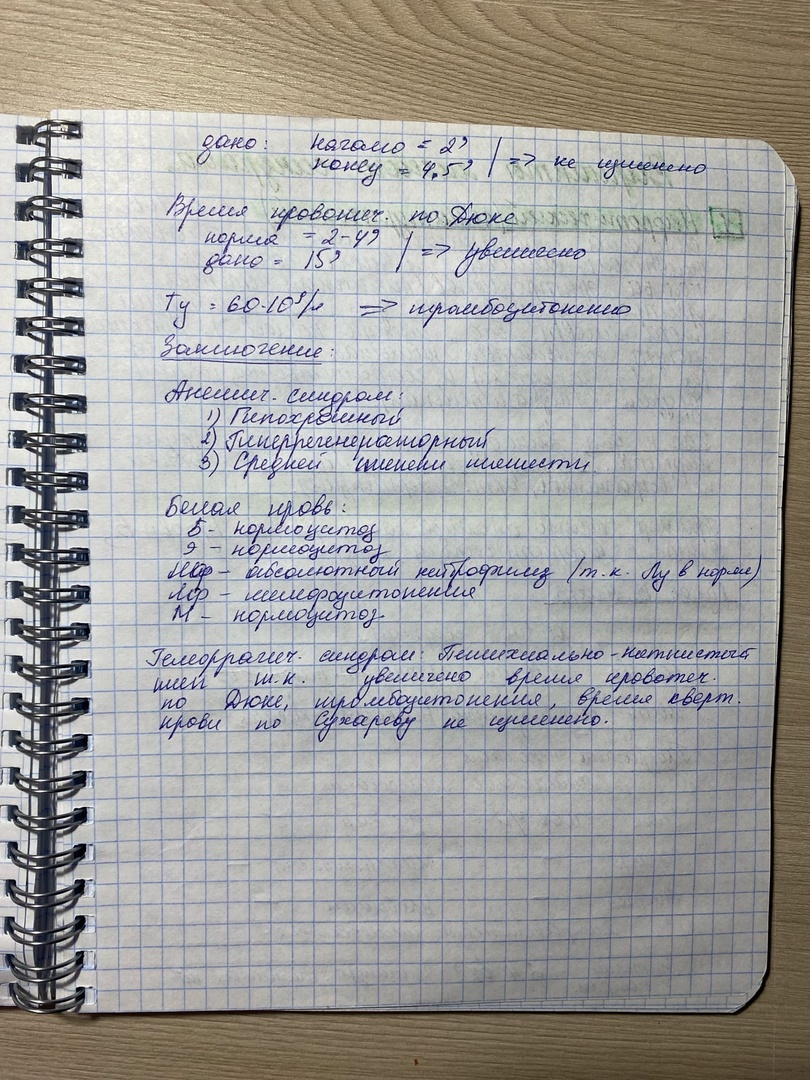 дано: начало = 2'
конец = 4,5' | => не изменено
Время кровотеч. по Дюке
норма = 2-4'
дано = 15' | => увеличено
Тц = 60·10⁹/л => тромбоцитопения
Заключение:
Анемич. синдром:
1) Гипохромный
2) Гиперрегенераторный
3) Средней степени тяжести
Белая кровь:
Б - нормоцитоз
Э - нормоцитоз
Нф - абсолютный нейтрофилез (т.к. Лц в норме)
Лф - лимфоцитопения
М - нормоцитоз
Геморрагич. синдром: Петехиально-пятнистый
тип т.к. увеличено время кровотеч.
по Дюке, тромбоцитопения, время сверт.
крови по Сухареву не изменено.